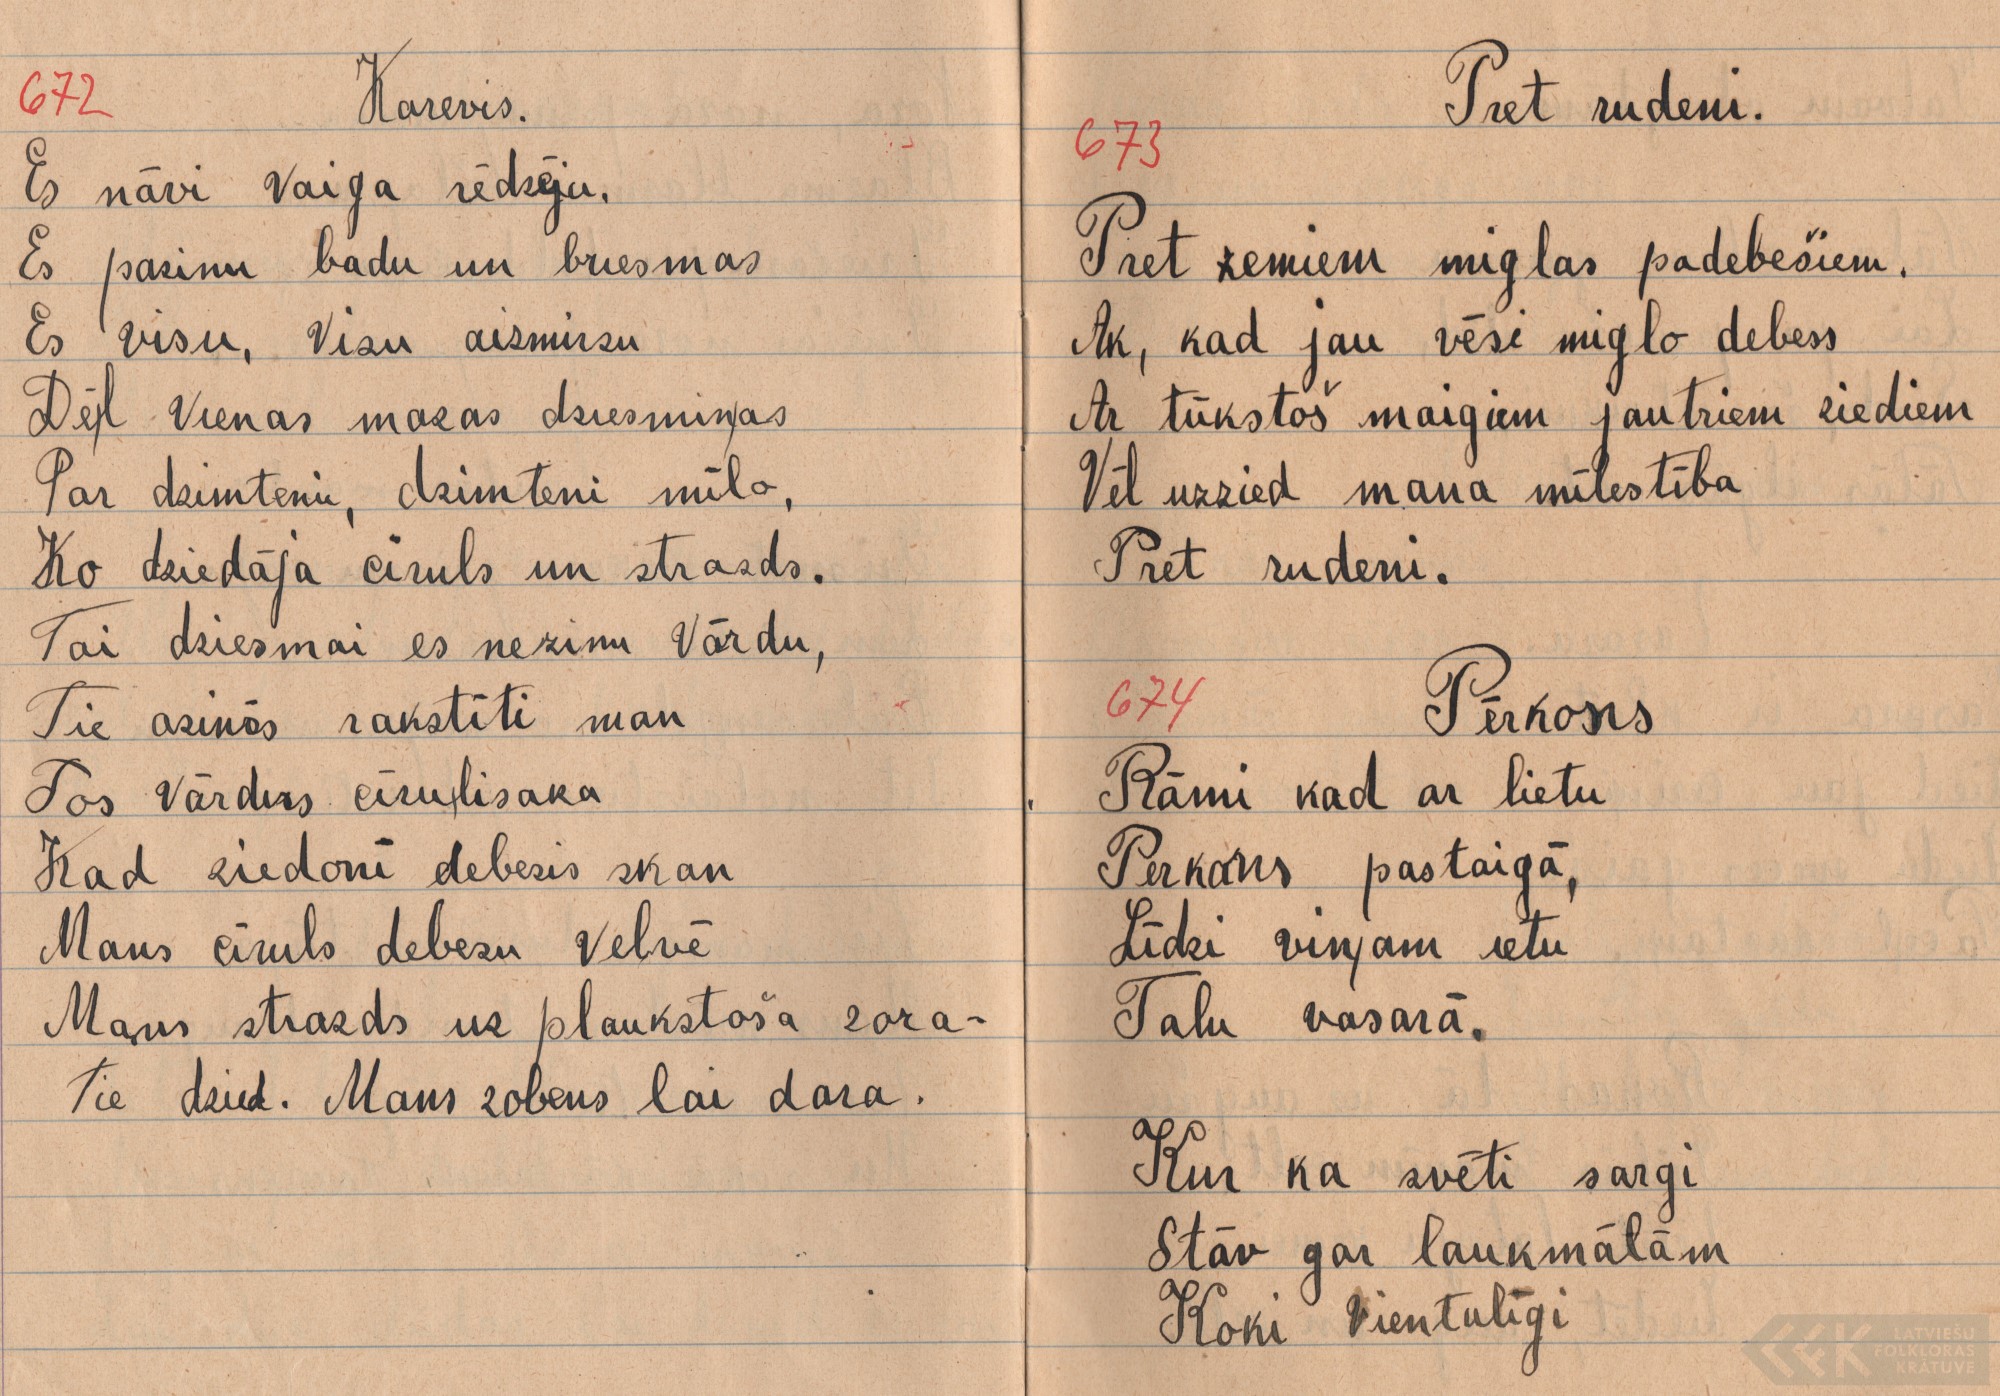 672
Karevis.
Es nāvi vaiga rēdzēju.
Es pazinu badu un briesmas
Es visu, visu aizmirsu
Dēļ vienas mazas dziesmiņas
Par dzimteni, dzimteni mīlo,
Ko dziedāja cīruls un strazds.
Tai dziesmai es nezinu vārdu,
Tie asinēs rakstīti man
Tos vārdus cīruļlisaka
Kad ziedonī debesis skan
Mans cīruls debesu velvē
Mans strazds uz plaukstoša zora-
Tie dzied. Mans zobens lai dara.
Pret rudeni.
673
Pret zemiem miglas padebešiem.
Ak, kad jau vēsi miglo debess
Ar tūkstoš maigiem jautriem ziediem
Vēl uzzied mana mīlestība
Pret rudeni.
674
Pērkons
Rāmi kad ar lietu
Perkons pastaigā,
Līdzi viņam ietu
Talu vasarā.
Kur ka svēti sargi
Stāv gar laukmālām
Koki vientulīgi
LATVIEŠU
FOLKLORAS
KRĀTUVE